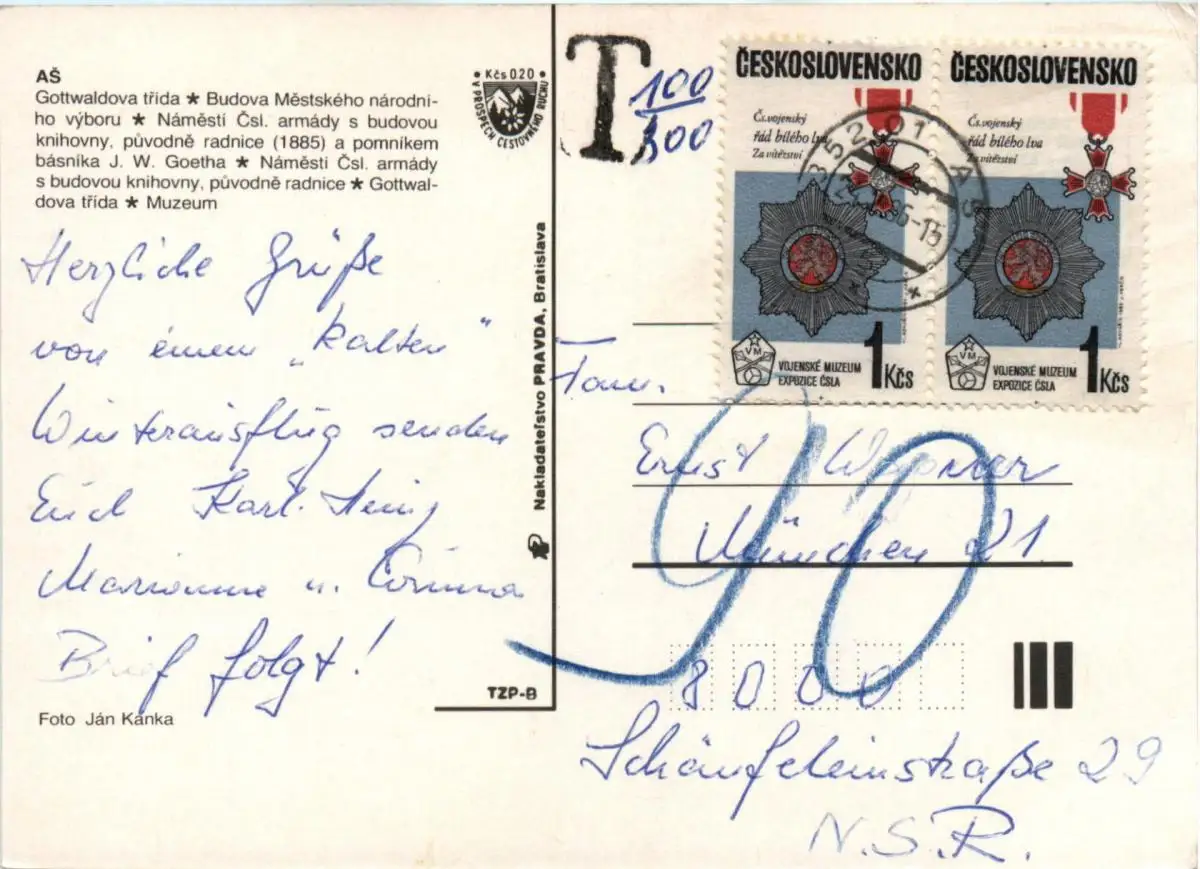 AŠ
Gottwaldova třída ★ Budova Městského národní-
ho výboru ★ Náměstí Čsl. armády s budovou
knihovny, původně radnice (1885) a pomníkem
básníka J. W. Goetha ★ Náměstí Čsl. armády
s budovou knihovny, původně radnice ★ Gottwal-
dova třída ★ Muzeum
Herzliche Grüße
von einem „kalten"
Winterausflug senden
Karl-Heinz
Marianne u. Corinna
Brief folgt!
Foto Ján Kanka
• Kčs 0.20 •
V PROSPĚCH CESTOVNÉHO RUCHU
Nakladateľstvo PRAVDA, Bratislava
TZP-B
T
100
300
ČESKOSLOVENSKO
Čs.vojenský
řád bílého lva
Za vítězství
VM
VOJENSKÉ MUZEUM
EXPOZICE ČSLA
1 Kčs
ČESKOSLOVENSKO
Čs.vojenský
řád bílého lva
Za vítězství
VM
VOJENSKÉ MUZEUM
EXPOZICE ČSLA
1 Kčs
352 01 AŠ
86-15
Fam.
Ernst
München 21.
90
8000
Schäufeleinstraße 29
N.S.R.